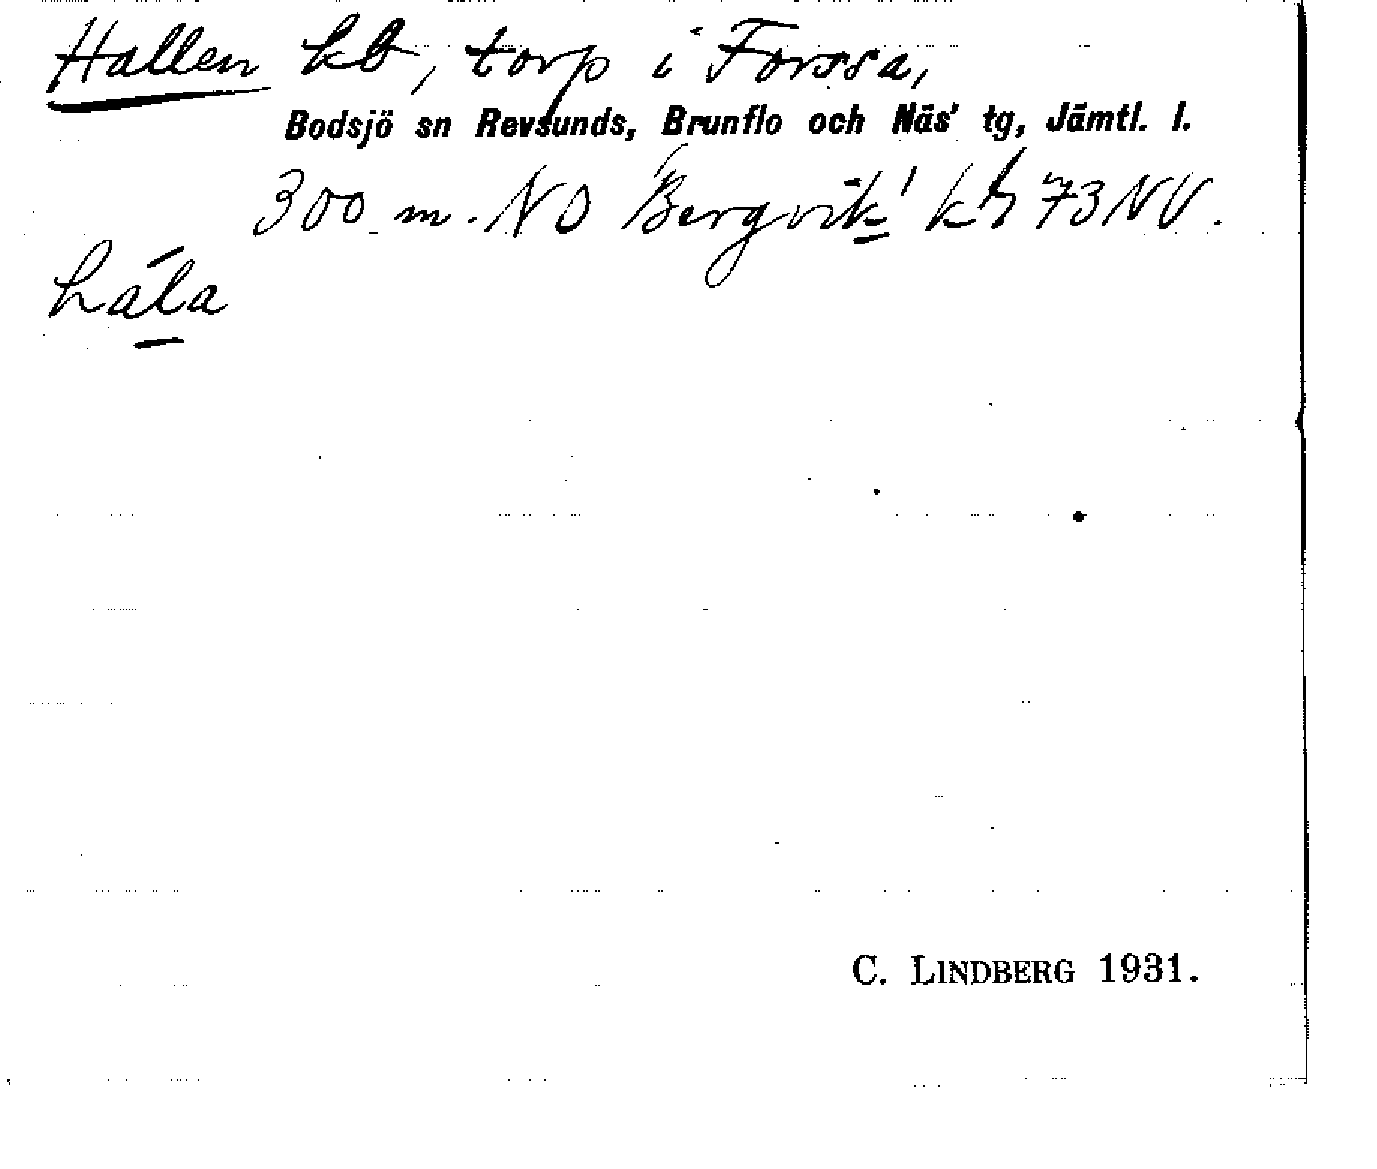 Hallen kb, torp i Forssa,
Bodsjö sn Revsunds, Brunflo och Näs' tg, Jämtl. l.
300 m. NO Bergvik' kb 73 NV.
C. LINDBERG 1931.